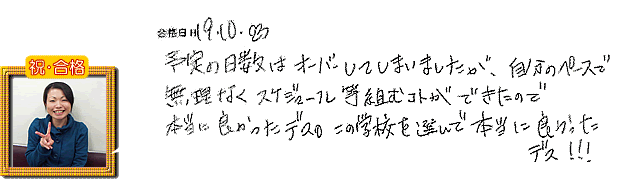 合格日 H19.10.23
祝・合格
予定の日数はオーバーしてしまいましたが、自分のペースで
無理なくスケジュール等組むコトができたので
本当に良かったデス。この学校を選んで本当に良かった
デス!!!